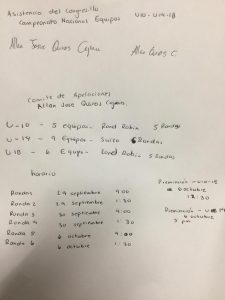 Asistencia del Congresillo
Campeonato Nacional Equipos U10 - U14 - 18
Allan Jose Quiros Allan Quiros C.
Comite de Apelaciones
Allan Jose Quiros
U-10 - 5 equipos - Rond Robin 5 Rondas
U-14 - 9 Equipos - Suizo 6 Rondas
U18 - 6 Equipo - Rond Robin 5 Rondas
horario
Ronda 1 29 septiembre 9:00
Ronda 2 29 septiembre 1:30
Ronda 3 30 septiembre 9:00
Ronda 4 30 septiembre 1:30
Ronda 5 6 octubre 9:00
Ronda 6 6 octubre 1:30
Premiación
6 octubre
12:30
Premiación
6 octubre
5 pm